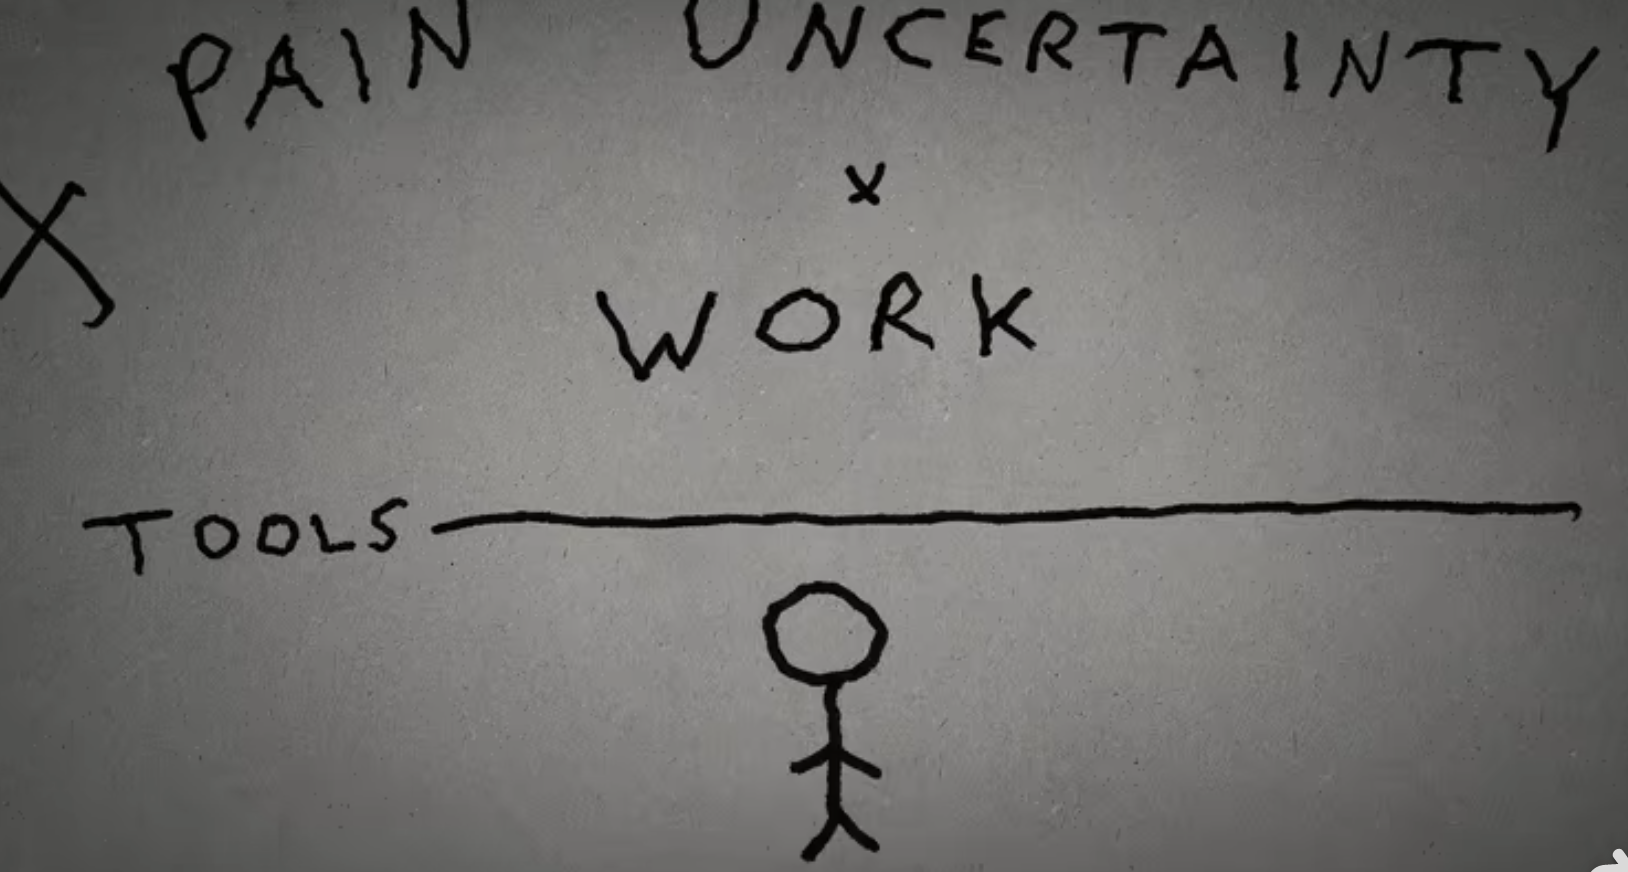 PAIN UNCERTAINTY
X
X
WORK
TOOLS